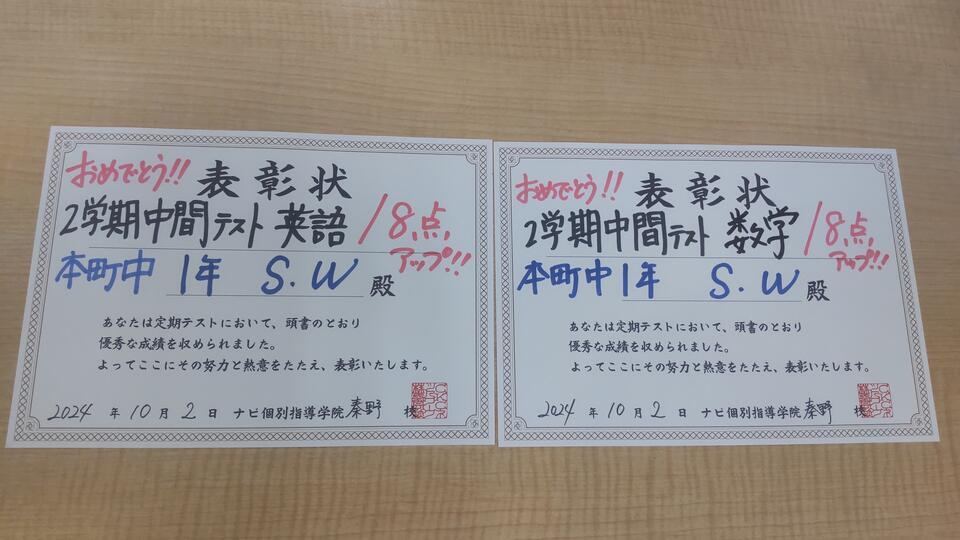 おめでとう!!
表彰状
2学期中間テスト 英語 18点アップ!!
本町中 1年 S.W 殿
あなたは定期テストにおいて、頭書のとおり
優秀な成績を収められました。
よってここにその努力と熱意をたたえ、表彰いたします。
2024 年 10 月 2 日 ナビ個別指導学院 秦野 校
おめでとう!!
表彰状
2学期中間テスト 数学 18点アップ!!
本町中 1年 S.W 殿
あなたは定期テストにおいて、頭書のとおり
優秀な成績を収められました。
よってここにその努力と熱意をたたえ、表彰いたします。
2024 年 10 月 2 日 ナビ個別指導学院 秦野 校